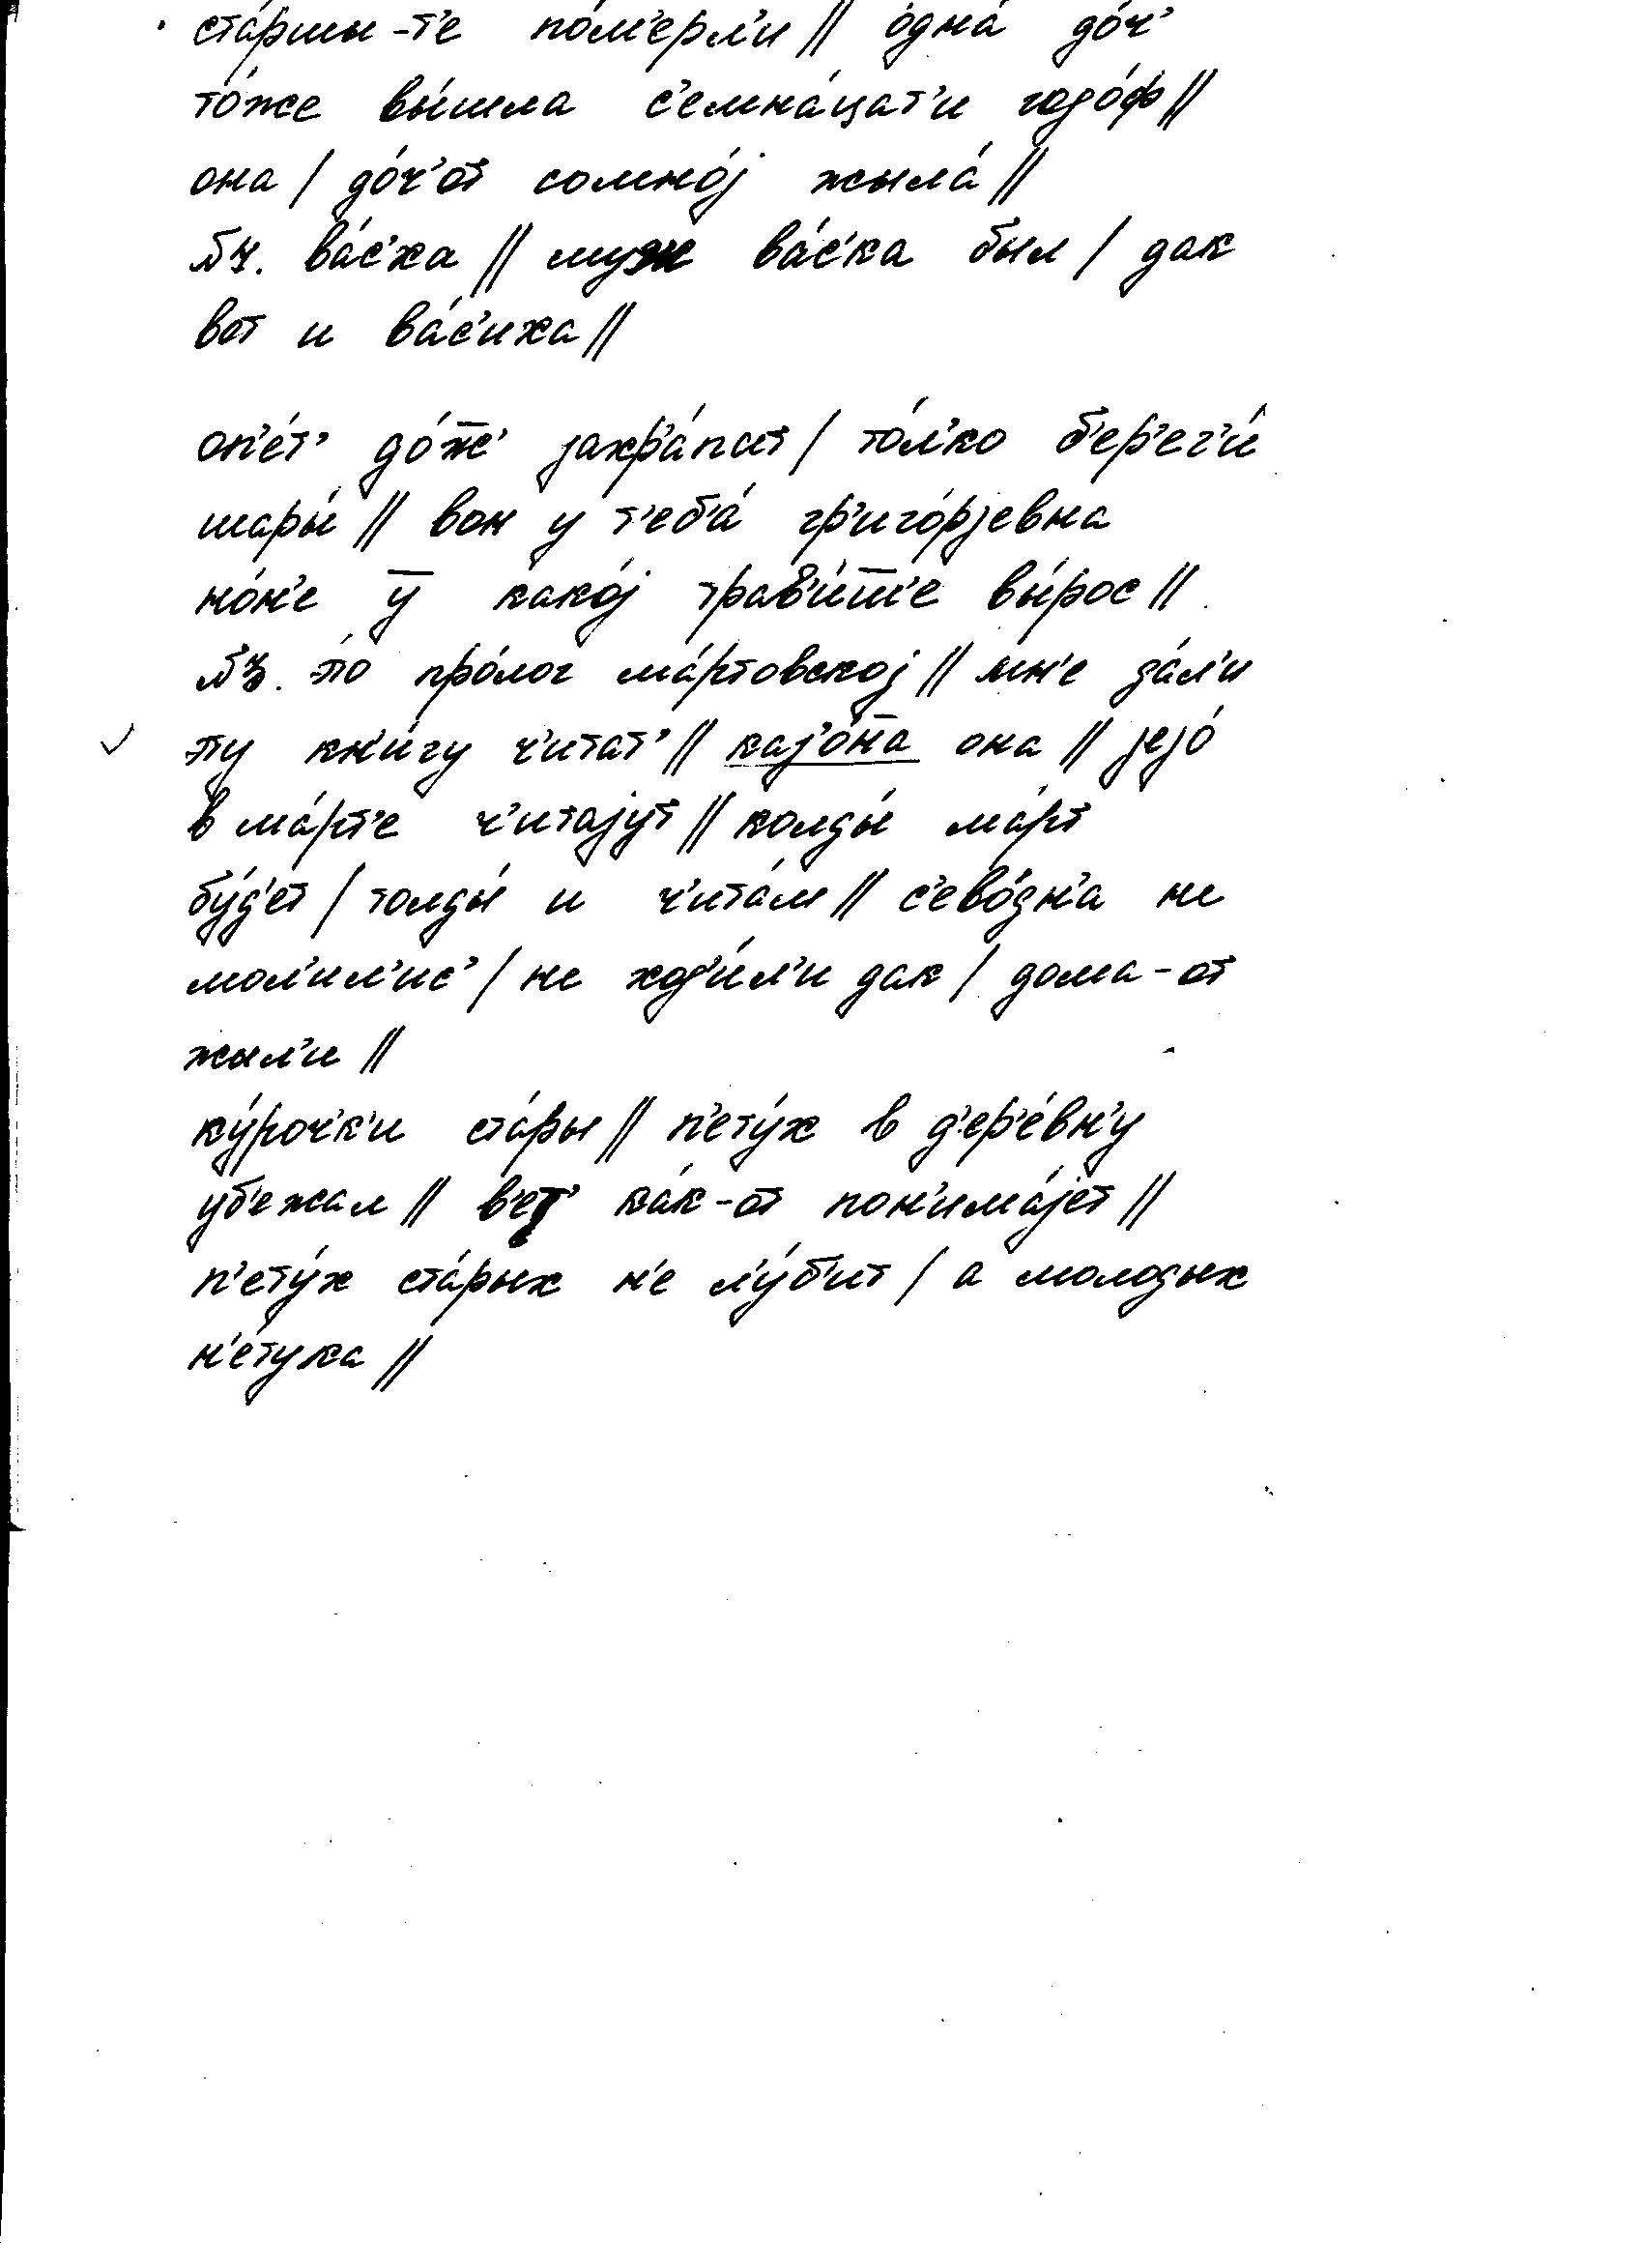 ста́ршы-т'е по́м'ерл'и // одна́ до́ч'
то́же вы́шла с'емна́цат'и годо́ф //
она / до́ч'от сомно́j жыла́ //
ва́с'ха // муж ва́с'ка был / дак
вот и ва́с'иха //
оп'е́т' до́ж̅' закра́пат / то́л'ко б'ер'ег'и́
шары́ // вон у т'еба́ гр'иго́рjевна
но́н'е у̅ како́j трав'и́ш̅'е вы́рос //
э́то про́лог ма́ртовскоj // мн'е да́л'и
эту кн'и́гу ч'итат' // каj'о́н̅а она // jеjо́
в ма́рт'е ч'итаjут // колды́ ма́рт
бу́д'ет / толды́ и ч'ита́м // с'ево́дн'а не
мол'ил'ис' / не ход'и́л'и дак / дома-от
жыл'и //
ку́роч'к'и ста́ры // п'ету́х в д'ер'е́вн'у
уб'ежал // в'ет' ка́к-от пон'има́jет //
п'ету́х ста́рых н'е л'у́б'ит / а молодых
н'е́тука //